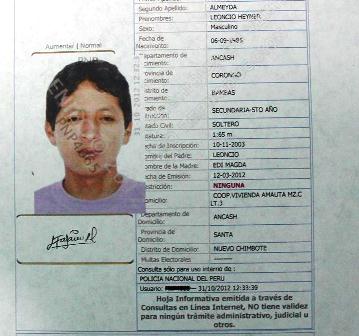 Segundo Apellido: ALMEYDA
Prenombres: LEONCIO HEYMER
Sexo: Masculino
Fecha de Nacimiento: 06-09-1985
Departamento de
cimiento: ANCASH
ovincia de
cimiento:
strito de
cimiento: BAMBAS
rado de
SECUNDARIA-5TO AÑO
tado Civil: SOLTERO
tatura: 1:65 m
cha de Inscripción: 10-11-2003
ombre del Padre: LEONCIO
ombre de la Madre: EDI MAGDA
cha de Emisión: 12-03-2012
stricción: NINGUNA
omicilio: COOP.VIVIENDA AMAUTA MZ.C
LT.3
Departamento de
Domicilio: ANCASH
Provincia de
Domicilio: SANTA
Distrito de Domicilio: NUEVO CHIMBOTE
Multas Electorales
Consulta sólo para uso interno de :
POLICIA NACIONAL DEL PERU
Usuario: 31/10/2012 12:33:39
Hoja Informativa emitida a través de
Consultas en Línea Internet, NO tiene validez
para ningún trámite administrativo, judicial u
otros.
Aumentar | Normal
PNP